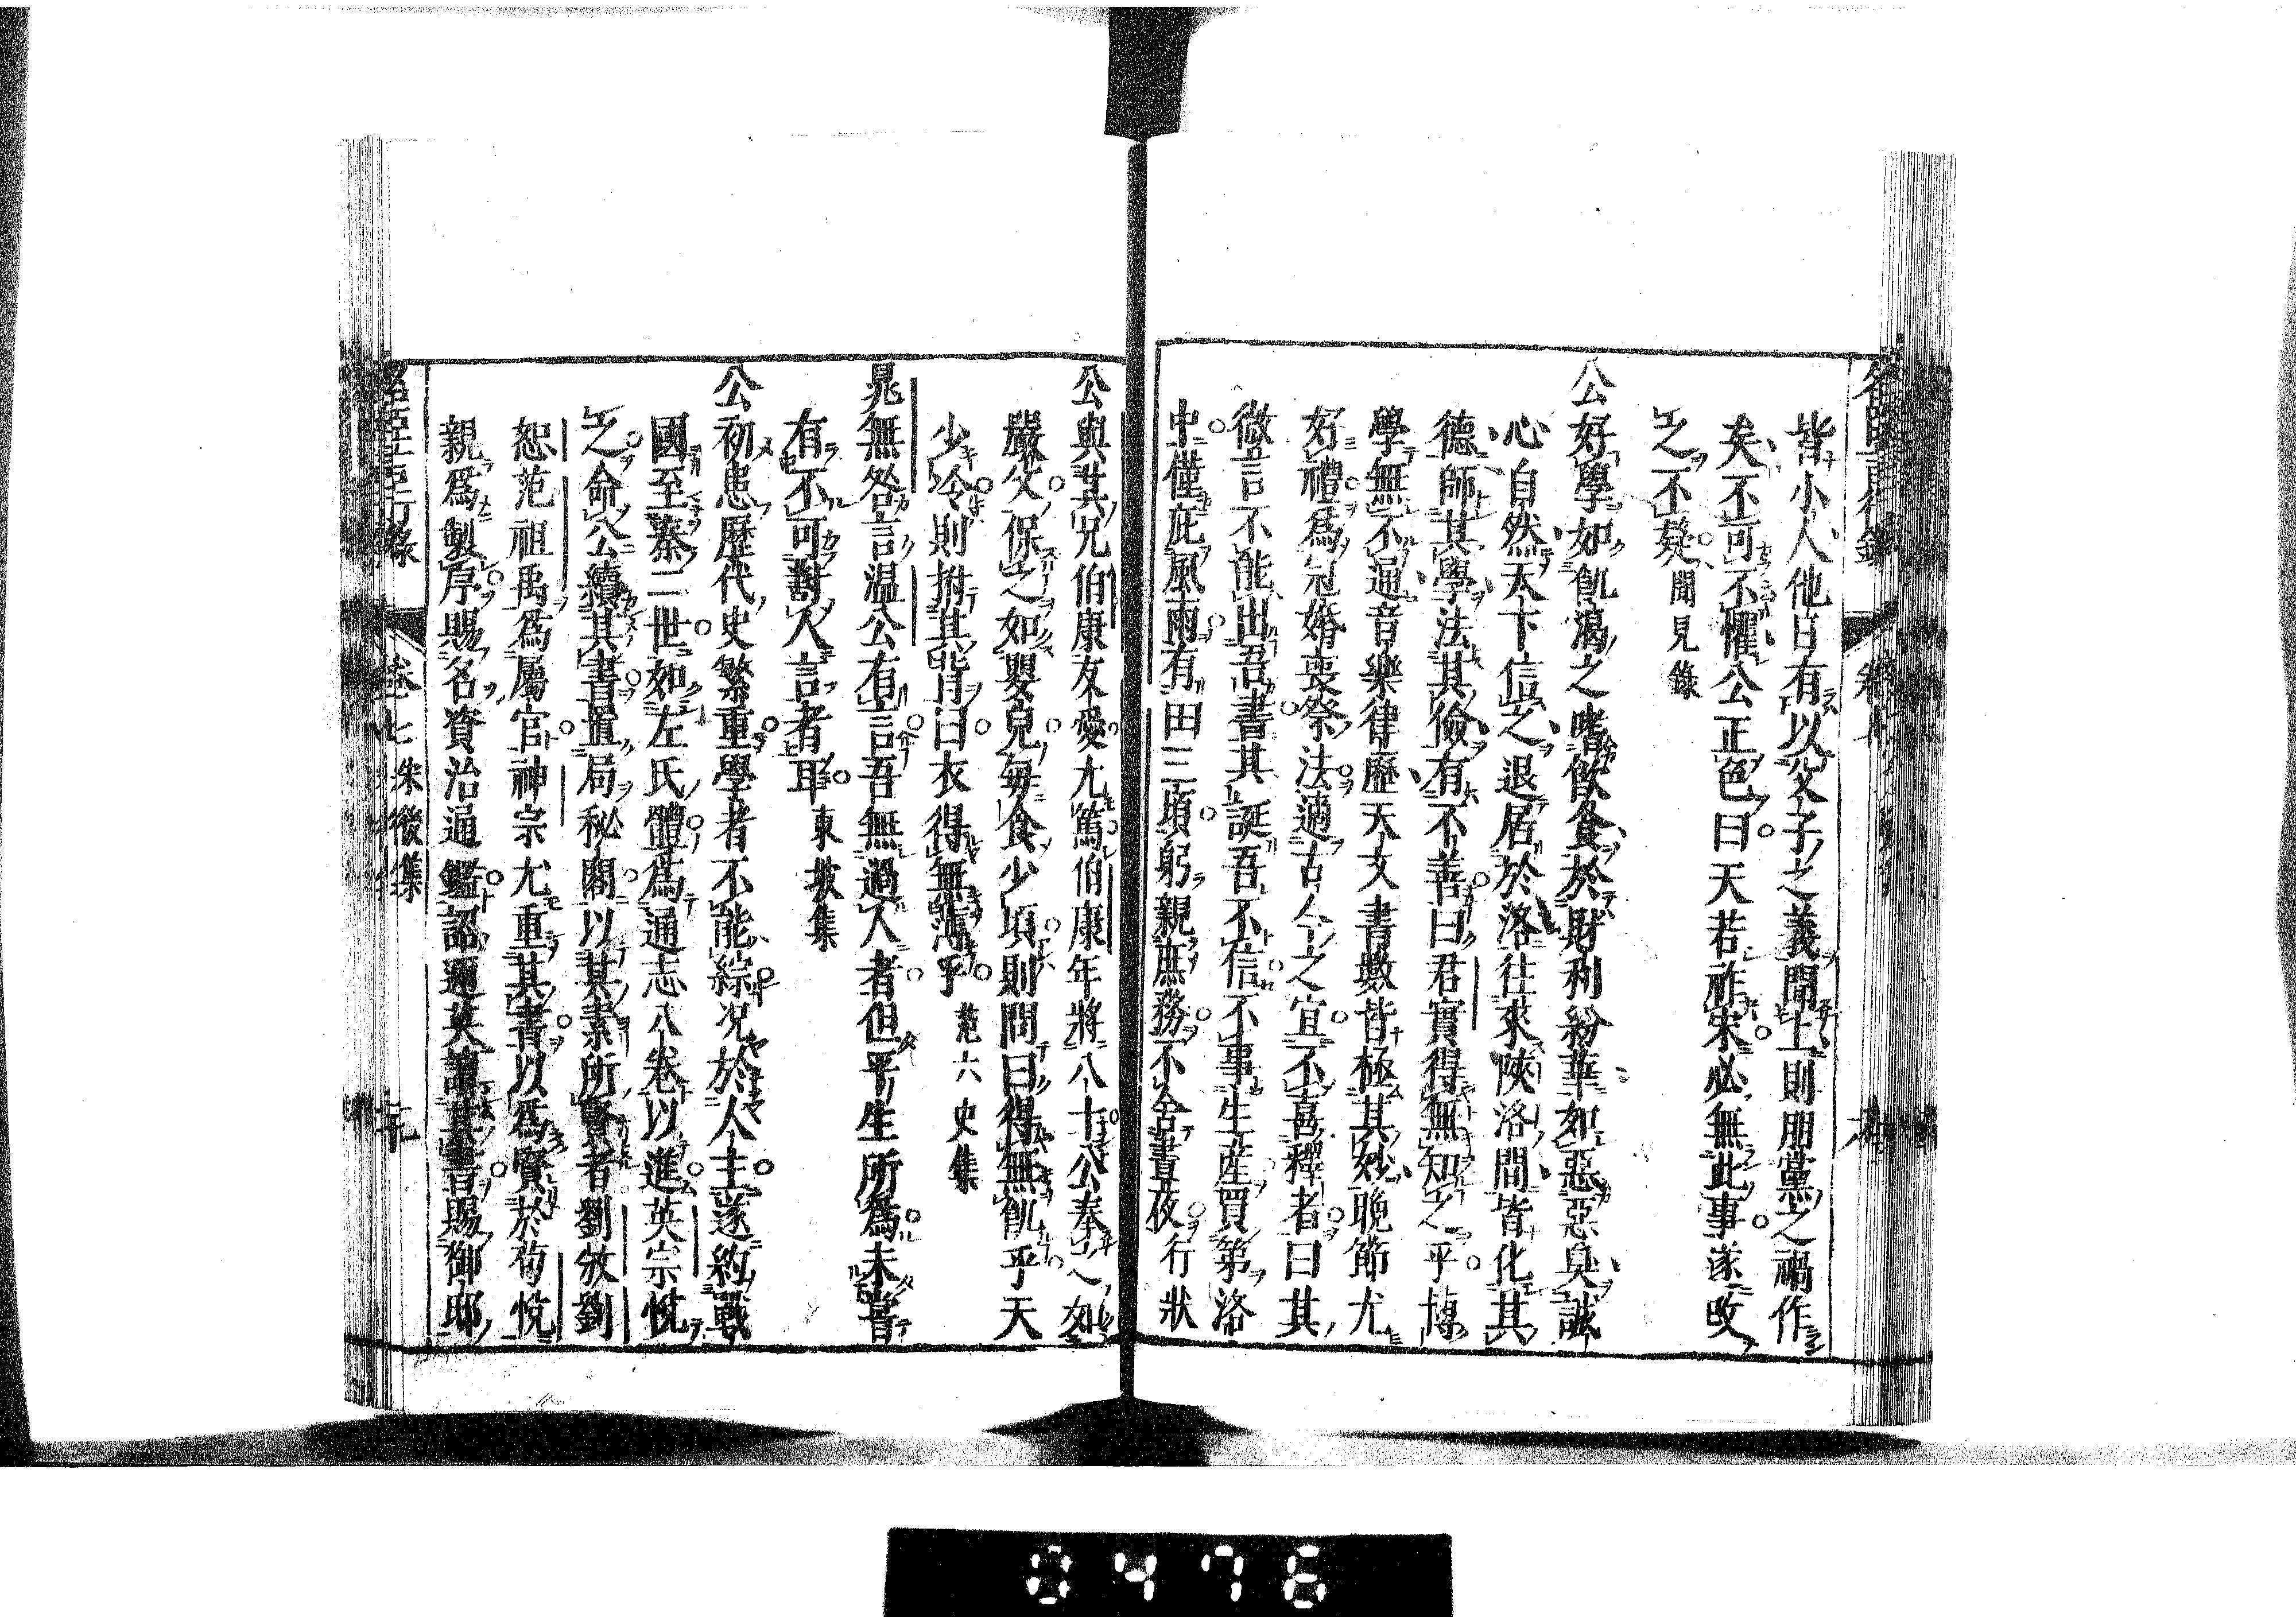 皆小人他日有以父子之義間上則朋黨之禍作
矣不可不懼公正色曰天若祚宋必無此事遂改
之不疑聞見錄
公好學如飢渴之嗜飲食於財利紛華如惡惡臭誠
心自然天下信之退居於洛往來陝洛間皆化其
德師其學法其儉有不善曰君實得無知之乎博
學無不通音樂律歷天文書數皆極其妙晚節尤
好禮爲冠婚喪祭法適古今之宜不喜釋老曰其
微言不能出吾書其誕吾不信不事生產買第洛
中僅庇風雨有田三頃躬親庶務不舍晝夜行狀
公與其兄伯康友愛尤篤伯康年將八十公奉之如
嚴父保之如嬰兒每食少頃則問曰得無飢乎天
少冷則拊其背曰衣得無薄乎范六史集
晁無咎言温公有言吾無過人者但平生所爲未嘗
有不可對人言者耳東坡集
公初患歷代史繁重學者不能綜况於人主遂約戰
國至秦二世如左氏體爲通志八卷以進英宗悅
之命公續其書置局秘閣以其素所賢者劉攽劉
恕范祖禹爲屬官神宗尤重其書以爲賢於荀悅
親爲製序賜名資治通鑑詔邇英讀其書賜御邸
卷七 朱後集
0476